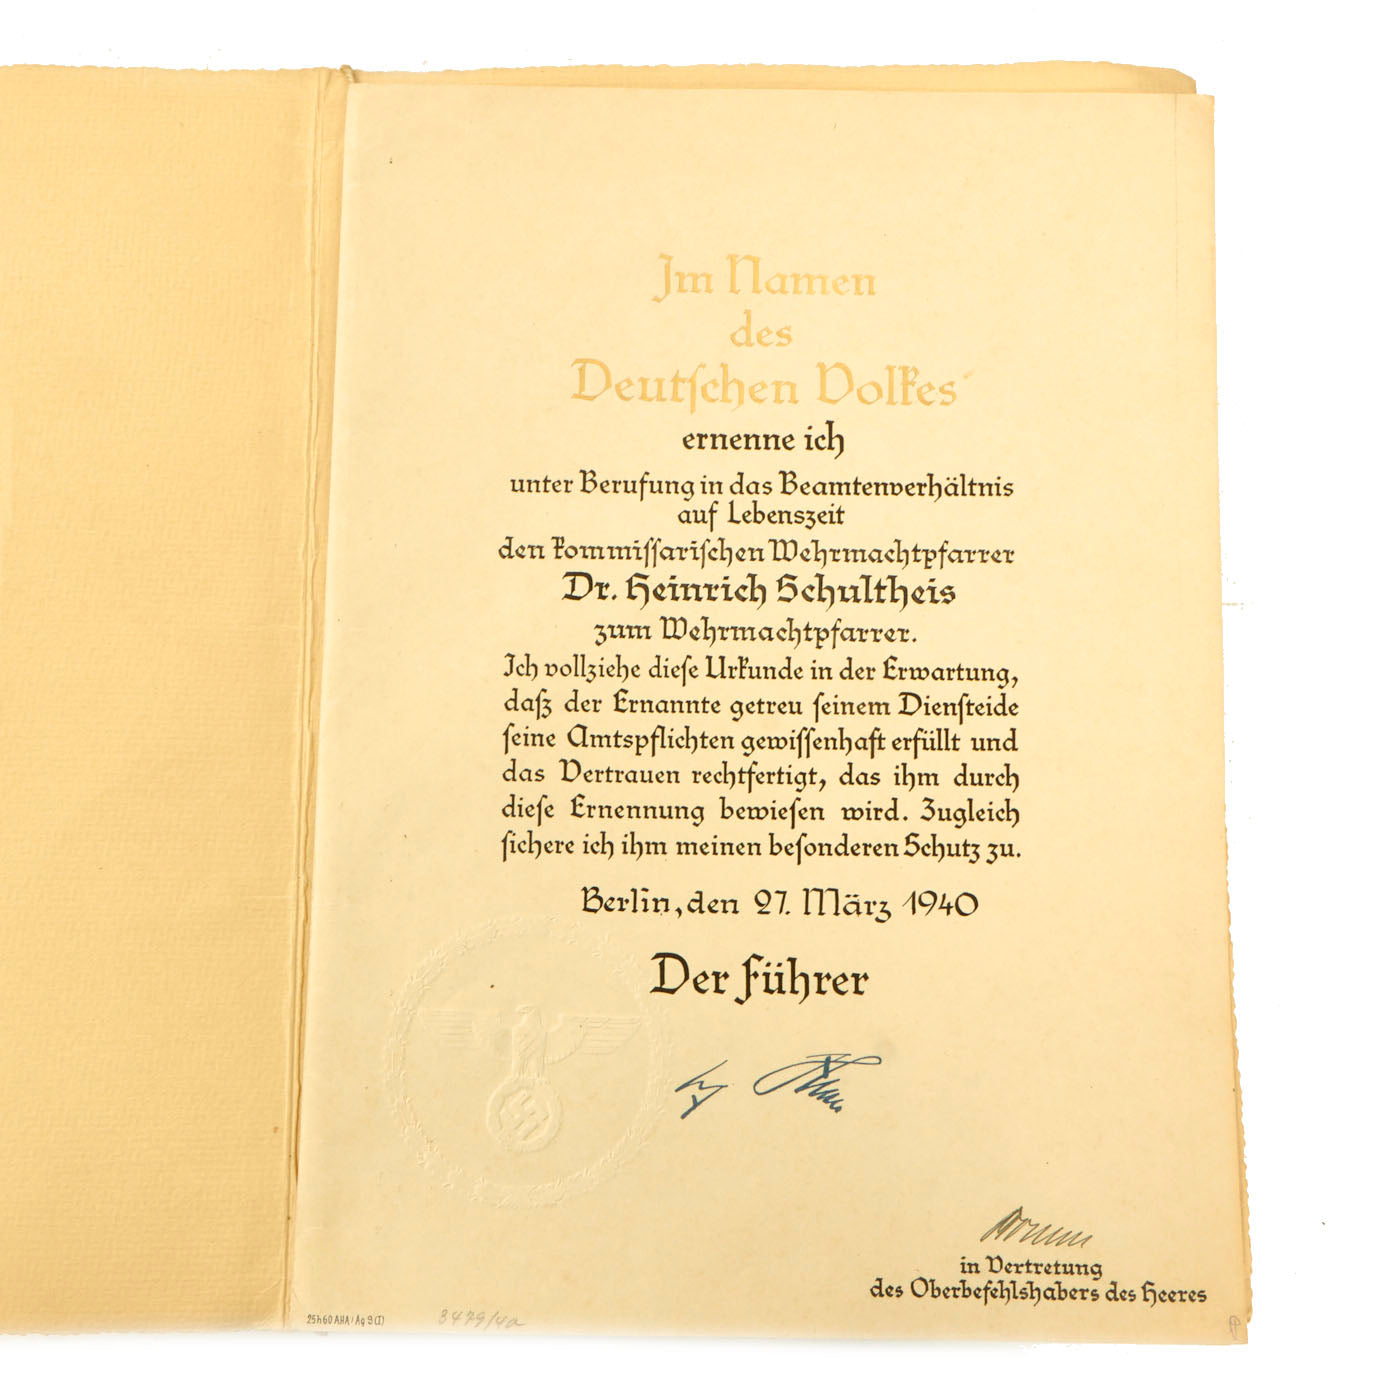 Im Namen
des
Deutschen Volkes
ernenne ich
unter Berufung in das Beamtenverhältnis
auf Lebenszeit
den kommissarischen Wehrmachtpfarrer
Dr. Heinrich Schultheis
zum Wehrmachtpfarrer.
Ich vollziehe diese Urkunde in der Erwartung,
daß der Ernannte getreu seinem Diensteide
seine Amtspflichten gewissenhaft erfüllt und
das Vertrauen rechtfertigt, das ihm durch
diese Ernennung bewiesen wird. Zugleich
sichere ich ihm meinen besonderen Schutz zu.
Berlin, den 27. März 1940
Der Führer
in Vertretung
des Oberbefehlshabers des Heeres
25h60 AHA/Ag 9(I) 3479/40